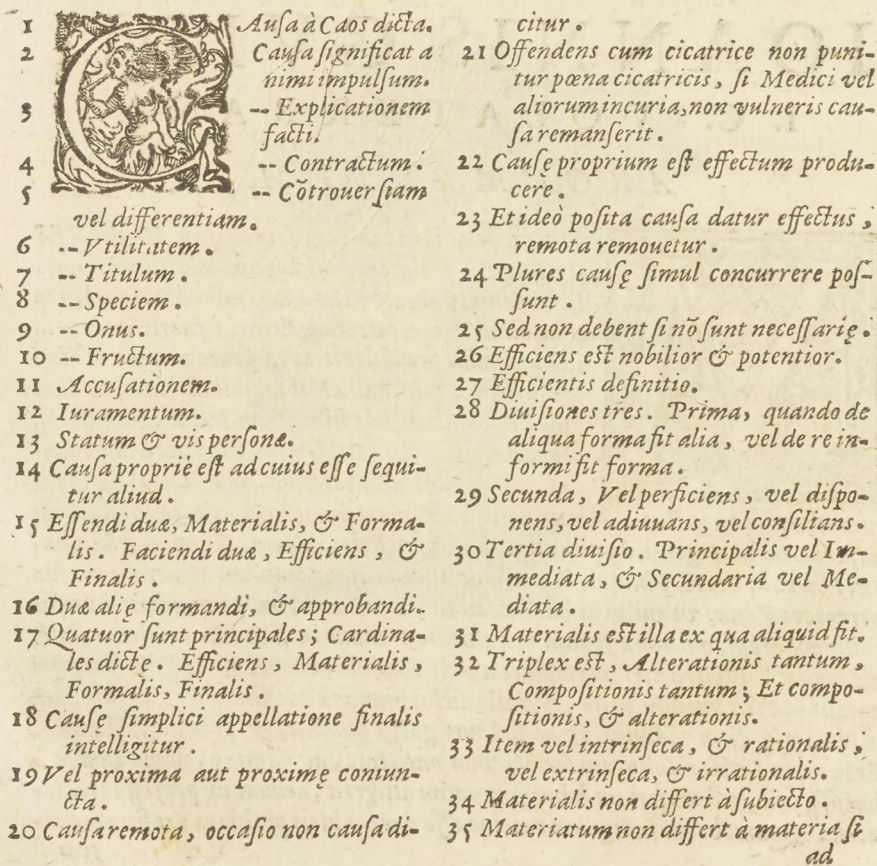 1 CAuſa à Caos dicta.
2 Cauſa ſignificat a
nimi impulſum.
3 -- Explicationem
facti.
4 -- Contractum.
5 -- Cõtrouerſiam
vel differentiam.
6 -- Vtilitatem.
7 -- Titulum.
8 -- Speciem.
9 -- Onus.
10 -- Fructum.
11 Accuſationem.
12 Iuramentum.
13 Statum & vis perſonæ.
14 Cauſa propriè eſt ad cuius eſſe ſequi-
tur aliud.
15 Eſſendi duæ, Materialis, & Forma-
lis. Faciendi duæ, Efficiens, &
Finalis.
16 Duæ alię formandi, & approbandi.
17 Quatuor ſunt principales; Cardina-
les dictę. Efficiens, Materialis,
Formalis, Finalis.
18 Cauſę ſimplici appellatione finalis
intelligitur.
19 Vel proxima aut proximę coniun-
cta.
20 Cauſa remota, occaſio non cauſa di-
citur.
21 Offendens cum cicatrice non puni-
tur pœna cicatricis, ſi Medici vel
aliorum incuria, non vulneris cau-
ſa remanſerit.
22 Cauſę proprium eſt effectum produ-
cere.
23 Et ideò poſita cauſa datur effectus,
remota remouetur.
24 Plures cauſę ſimul concurrere poſ-
ſunt.
25 Sed non debent ſi nõ ſunt neceſſarię.
26 Efficiens eſt nobilior & potentior.
27 Efficientis definitio.
28 Diuiſiones tres. Prima, quando de
aliqua forma fit alia, vel de re in-
formi fit forma.
29 Secunda, Vel perficiens, vel diſpo-
nens, vel adiuuans, vel conſilians.
30 Tertia diuiſio. Principalis vel Im-
mediata, & Secundaria vel Me-
diata.
31 Materialis eſt illa ex qua aliquid fit.
32 Triplex eſt, Alterationis tantum,
Compoſitionis tantum; Et compo-
ſitionis, & alterationis.
33 Item vel intrinſeca, & rationalis,
vel extrinſeca, & irrationalis.
34 Materialis non differt à ſubiecto.
35 Materiatum non differt à materia ſi
ad